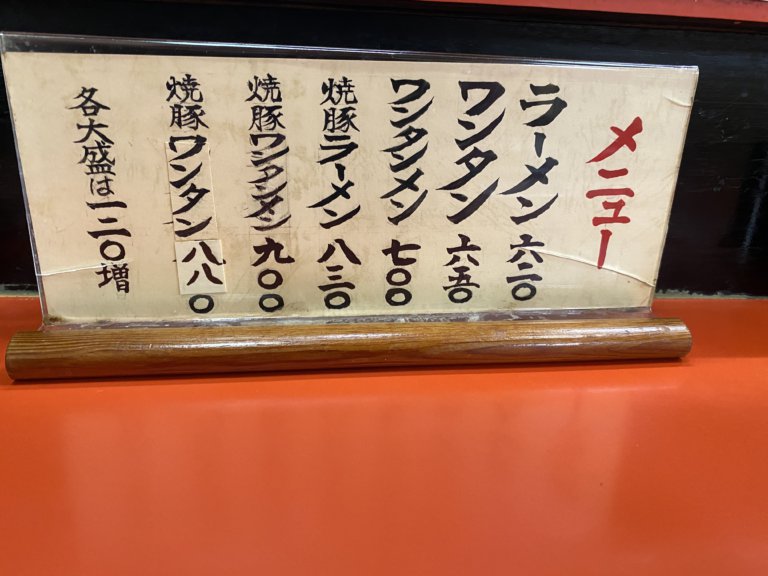 メニュー
ラーメン 六二〇
ワンタン 六五〇
ワンタンメン 七〇〇
焼豚ラーメン 八三〇
焼豚ワンタンメン 九〇〇
焼豚ワンタン 八八〇
各大盛は一二〇増